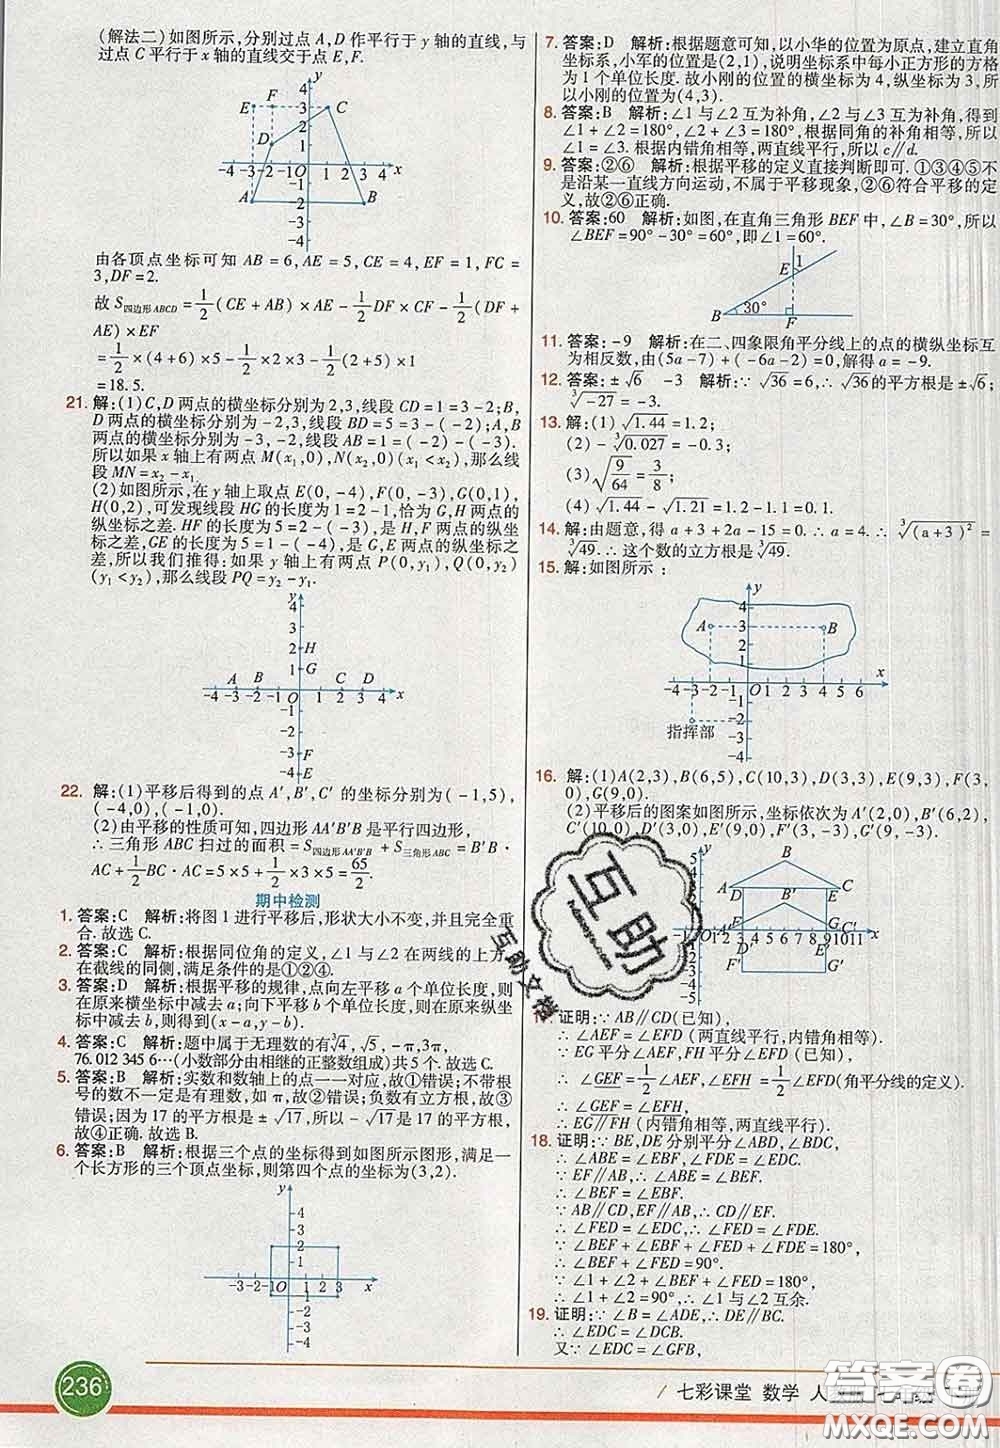 (解法二)如图所示,分别过点A,D作平行于y轴的直线,与
过点C平行于x轴的直线交于点E,F.
由各顶点坐标可知 AB=6,AE=5,CE=4,EF=1,FC=
3,DF=2.
故 S四边形ABCD=1/2(CE+AB)×AE-1/2DF×CF-1/2(DF+
AE)×EF
=1/2×(4+6)×5-1/2×2×3-1/2(2+5)×1
=18.5.
21. 解:(1)C,D两点的横坐标分别为2,3,线段CD=1=3-2;B,
D两点的横坐标分别为-2,3,线段BD=5=3-(-2);A,B
两点的横坐标分别为-3,-2,线段AB=1=(-2)-(-3).
所以如果x轴上有两点M(x₁,0),N(x₂,0)(x₁<x₂),那么线
段MN=x₂-x₁.
(2)如图所示,在y轴上取点E(0,-4),F(0,-3),G(0,1),
H(0,2),可发现线段HG的长度为1=2-1,恰为G,H两点的
纵坐标之差.HF的长度为5=2-(-3),是H,F两点的纵坐
标之差,GE的长度为5=1-(-4),是G,E两点的纵坐标之
差,所以我们推得:如果y轴上有两点P(0,y₁),Q(0,y₂)
(y₁<y₂),那么线段PQ=y₂-y₁.
22. 解:(1)平移后得到的点A′,B′,C′的坐标分别为(-1,5),
(-4,0),(-1,0).
(2)由平移的性质可知,四边形AA′B′B是平行四边形,
∴三角形ABC扫过的面积=S四边形AA′B′B+S三角形ABC=B′B·
AC+1/2BC·AC=5×5+1/2×3×5=65/2.
期中检测
1. 答案:C 解析:将图1进行平移后,形状大小不变,并且完全重
合.故选C.
2. 答案:C 解析:根据同位角的定义,∠1与∠2在两线的上方,
在截线的同侧,满足条件的是①②④.
3. 答案:D 解析:根据平移的规律,点向左平移a个单位长度,则
在原来横坐标中减去a;向下平移b个单位长度,则在原来纵坐
标中减去b,则得到(x-a,y-b).
4. 答案:C 解析:题中属于无理数的有³√4,√5,-π,√3/4,
76.012 345 6…(小数部分由相继的正整数组成)共5个.故选C.
5. 答案:B 解析:实数和数轴上的点一一对应,故①错误;不带根
号的数不一定是有理数,如π,故②错误;负数有立方根,故③
错误;因为17的平方根是±√17,所以-√17是17的平方根,
故④正确.故选B.
6. 答案:B 解析:根据三个点的坐标得到如图所示图形,满足一
个长方形的三个顶点坐标,则第四个点的坐标为(3,2).
7. 答案:D 解析:根据题意可知,以小华的位置为原点,建立直角
坐标系,小军的位置为(2,1),说明坐标系中每小正方形的方格
为1个单位长度.故小刚的位置的横坐标为4,纵坐标为3,所
以小刚的位置为(4,3).
8. 答案:B 解析:∠1与∠2互为补角,∠2与∠3互为补角,得到
∠1+∠2=180°,∠2+∠3=180°,根据同角的补角相等,所以
∠1=∠3.根据内错角相等,两直线平行,所以c∥d.
9. 答案:②⑥ 解析:根据平移的定义直接判断即可.①③④⑤不
是沿某一直线方向运动,不属于平移现象,②⑥符合平移的定
义,故②⑥正确.
10. 答案:60 解析:如图,在直角三角形BEF中,∠B=30°,所以
∠BEF=90°-30°=60°,即∠1=60°.
11. 答案:-9 解析:在二、四象限角平分线上的点的横纵坐标互
为相反数,由(5a-7)+(-6a-2)=0,解得a=-9.
12. 答案:±√6 -3 解析:∵√36=6,∴√36的平方根是±√6;
³√-27=-3.
13. 解:(1)√1.44=1.2;
(2)-³√0.027=-0.3;
(3)√(9/64)=3/8;
(4)√1.44-√1.21=1.2-1.1=0.1.
14. 解:由题意,得a+3+2a-15=0.∴a=4.∴³√(a+3)²=
³√49.∴这个数的立方根是³√49.
15. 解:如图所示:
指挥部
16. 解:(1)A(2,3),B(6,5),C(10,3),D(3,3),E(9,3),F(3,
0),G(9,0).
(2)平移后的图案如图所示,坐标依次为A′(2,0),B′(6,2),
C′(10,0),D′(3,0),E′(9,0),F′(3,-3),G′(9,-3).
证明:∵AB∥CD(已知),
∴∠AEF=∠EFD(两直线平行,内错角相等).
∵EG平分∠AEF,FH平分∠EFD(已知),
∴∠GEF=1/2∠AEF,∠EFH=1/2∠EFD(角平分线的定义).
∴∠GEF=∠EFH.
∴EG∥FH(内错角相等,两直线平行).
18. 证明:∵BE,DE分别平分∠ABD,∠BDC,
∴∠ABE=∠2,∠1=∠EDC.
∵EF∥AB,∴∠ABE=∠BEF.
∴∠BEF=∠EBF.
∵AB∥CD,EF∥AB,∴CD∥EF.
∴∠FED=∠EDC,∴∠FED=∠FDE.
∵∠BEF+∠EBF+∠FED+∠FDE=180°,
∴∠BEF+∠FED=90°.
∵∠1+∠2+∠BEF+∠FED=180°,
∴∠1+∠2=90°,∴∠1与∠2互余.
19. 证明:∵∠B=∠ADE,∴DE∥BC.
∴∠EDC=∠DCB.
又∵∠EDC=∠GFB,
236
七彩课堂 数学 人
互助
互助文档
答案卷
MXQE.COM